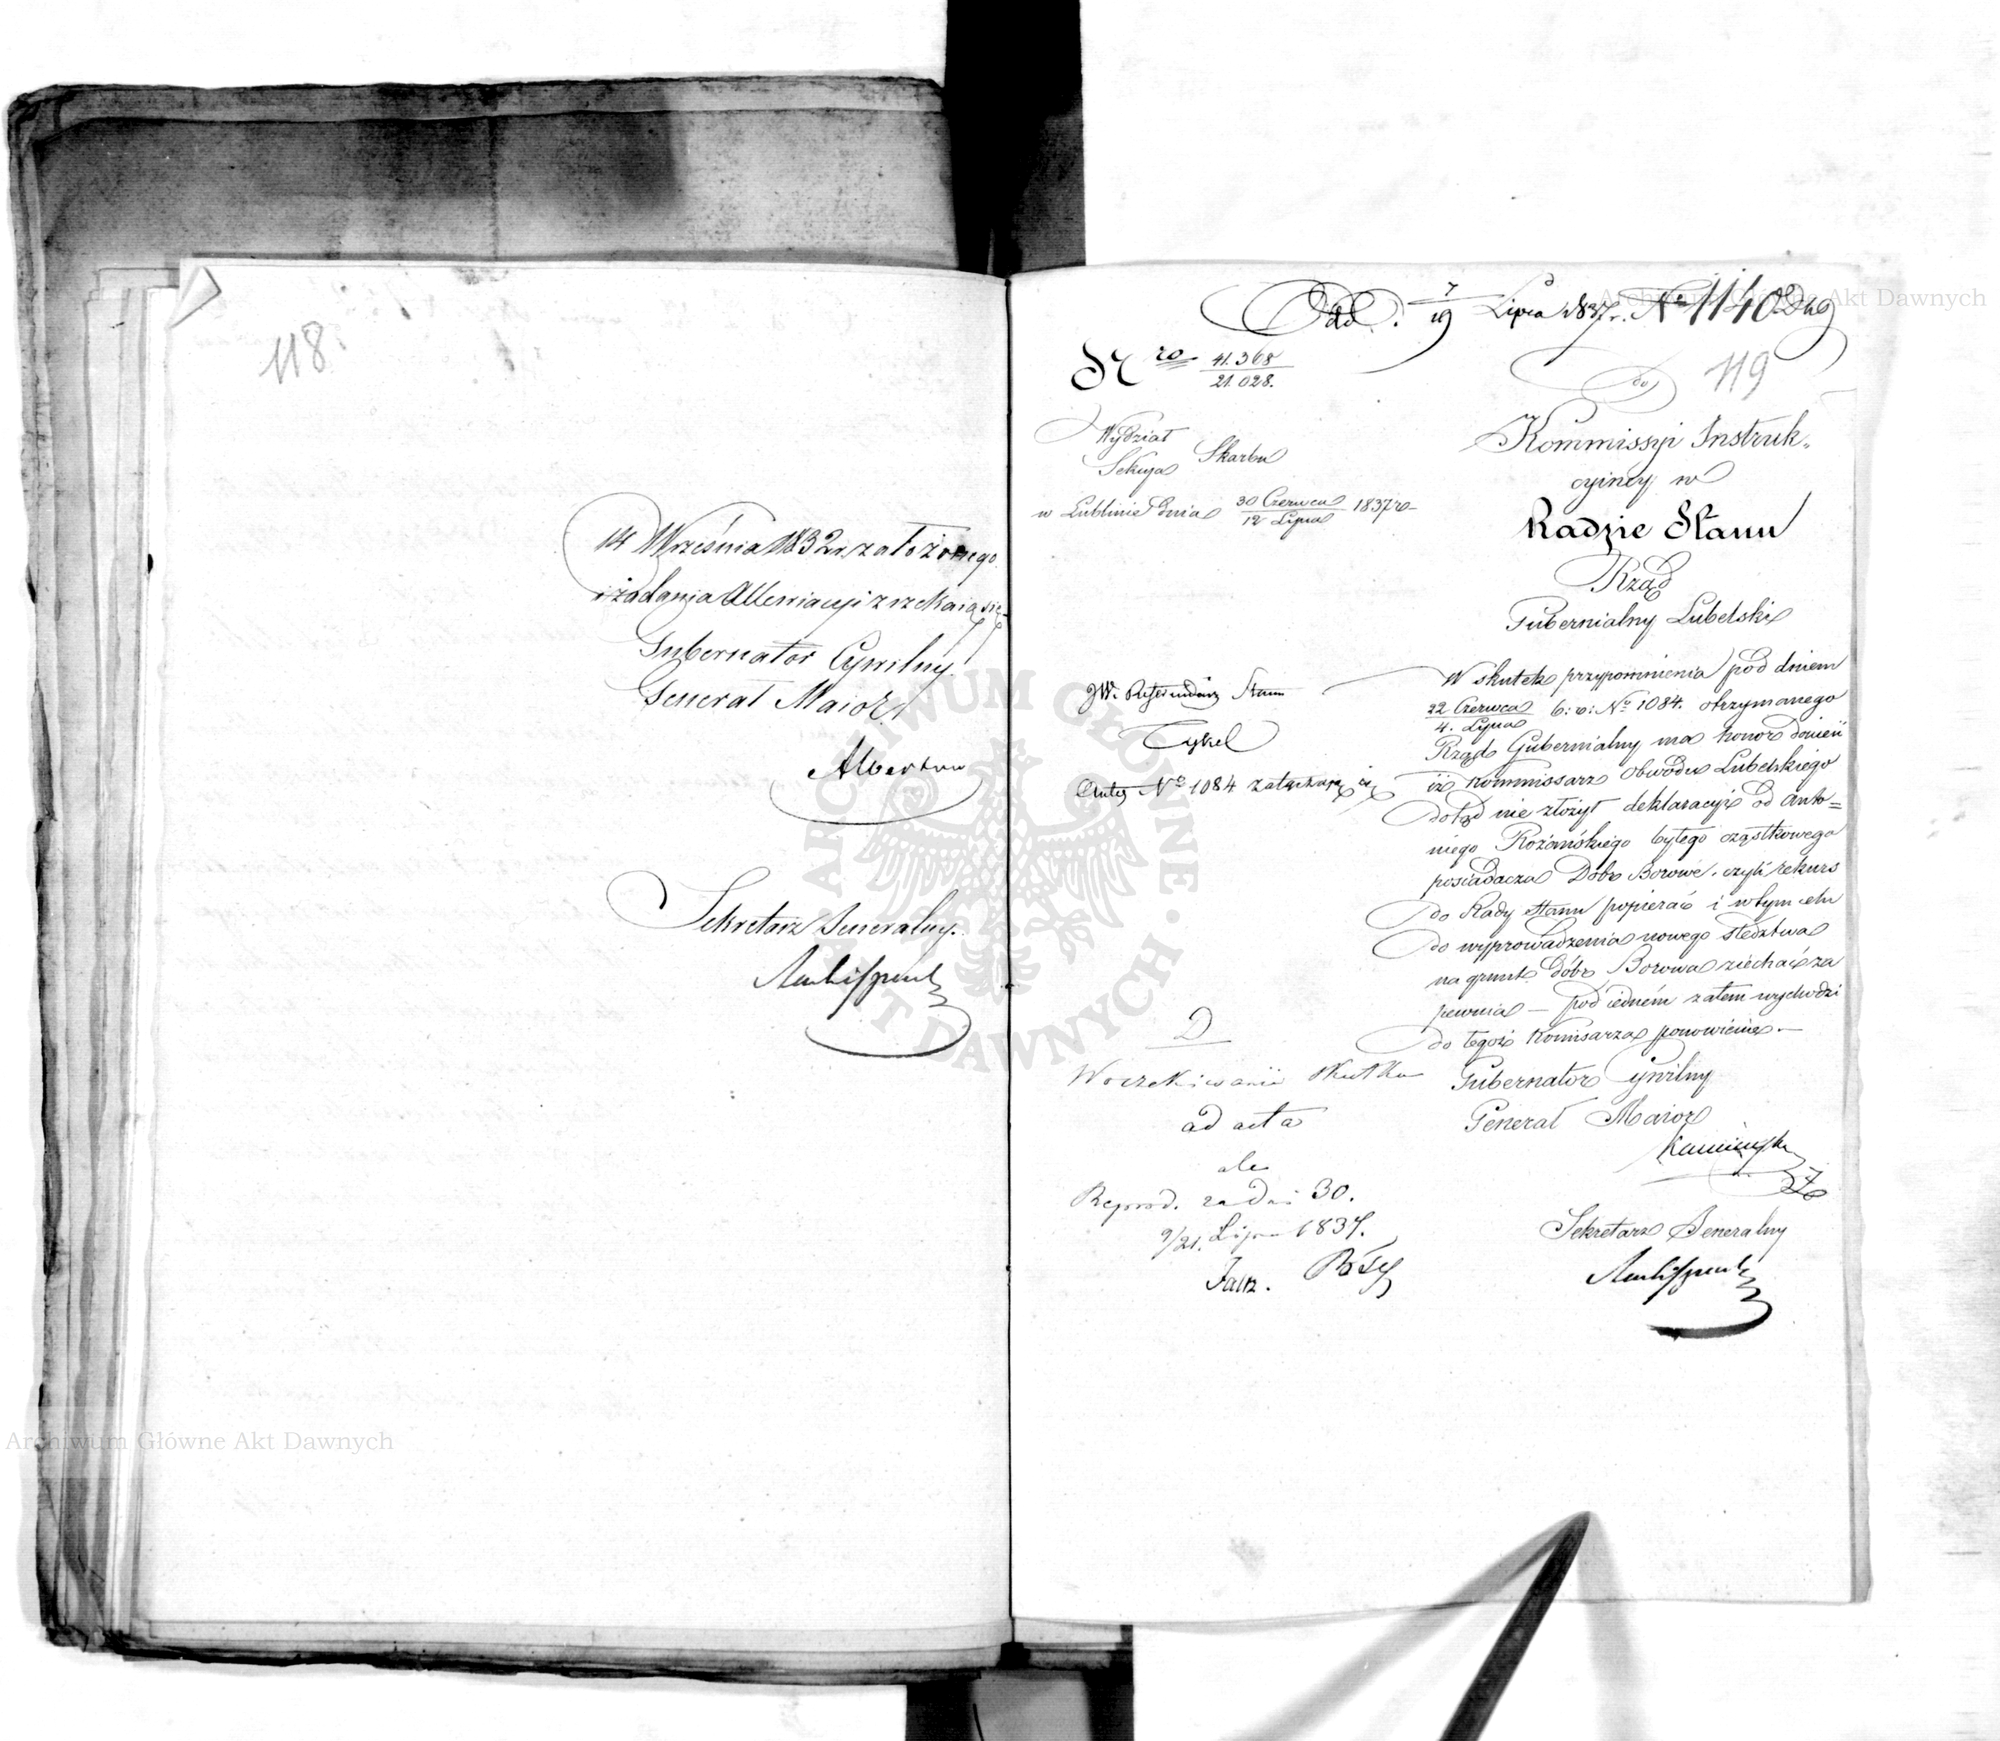 118.
14 Września 1832 r. założonego
żądania Allewiacyi zrzekaią się
Gubernator Cywilny
Generał Maior
Sekretarz Generalny.
Odd. 7/19 Lipca 1837 r. No 1140
119
Nro 41.368/21.028.
do
Wydział
Sekcya Skarbu
w Lublinie dnia 30 Czerwca/12 Lipca 1837 ro
Kommissyi Instruk-
cyiney w
Radzie Stanu
Rząd
Gubernialny Lubelski
JW. Referendarz Stanu
Anteq No 1084 załączają się
W skutek przypomnienia pod dniem
22 Czerwca/4. Lipca b: r: No 1084. otrzymanego
Rząd Gubernialny ma honor donieść
iż Kommissarz Obwodu Lubelskiego
dotąd nie złożył deklaracyi od Anto=
niego Rożańskiego byłego cząstkowego
posiadacza Dóbr Borowe, czyli rekurs
do Rady Stanu popierać i w tym celu
do wyprowadzenia nowego śledztwa
na grunt dóbr Borowa ziechać za
pewnia — pod iedném zatem wychodzi
do tegoż Komisarza ponowienie. —
Gubernator Cywilny
Generał Maior
Sekretarz Generalny
D
W oczekiwaniu skutku
ad acta
ale
Reprod. za dni 30.
9/21. Lipca 1837.
ARCHIWUM GŁÓWNE AKT DAWNYCH
Archiwum Główne Akt Dawnych
Archiwum Główne Akt Dawnych